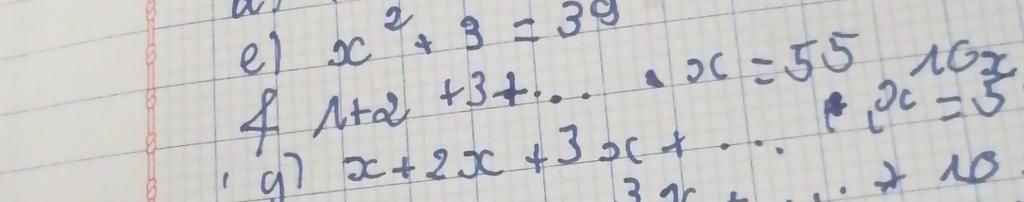 e) x² + 3 = 39
f 1+2 +3+... . x = 55
g) x + 2x + 3x + ... + 10x = 5